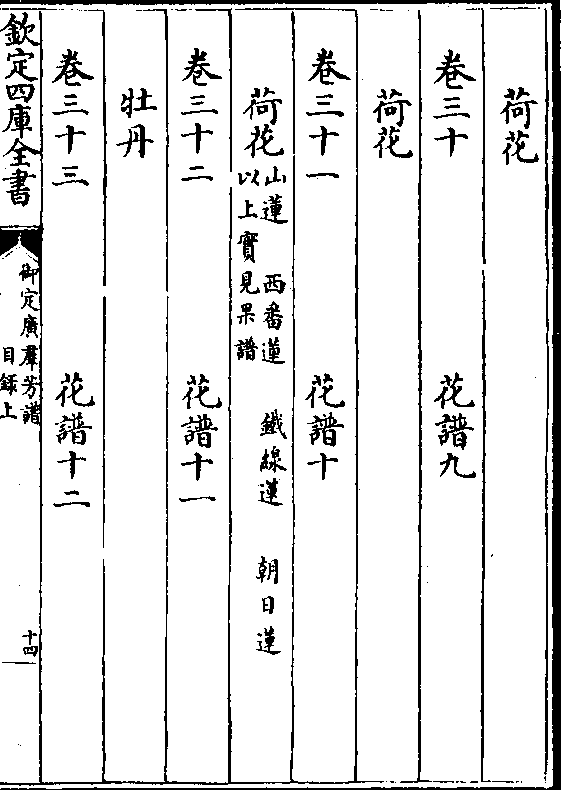 荷花
卷三十　花譜九
荷花
卷三十一　花譜十
荷花山蓮　西番蓮　鐵線蓮　朝日蓮
以上實見果譜
卷三十二　花譜十一
牡丹
卷三十三　花譜十二
欽定四庫全書
御定廣羣芳譜
目錄上
十四